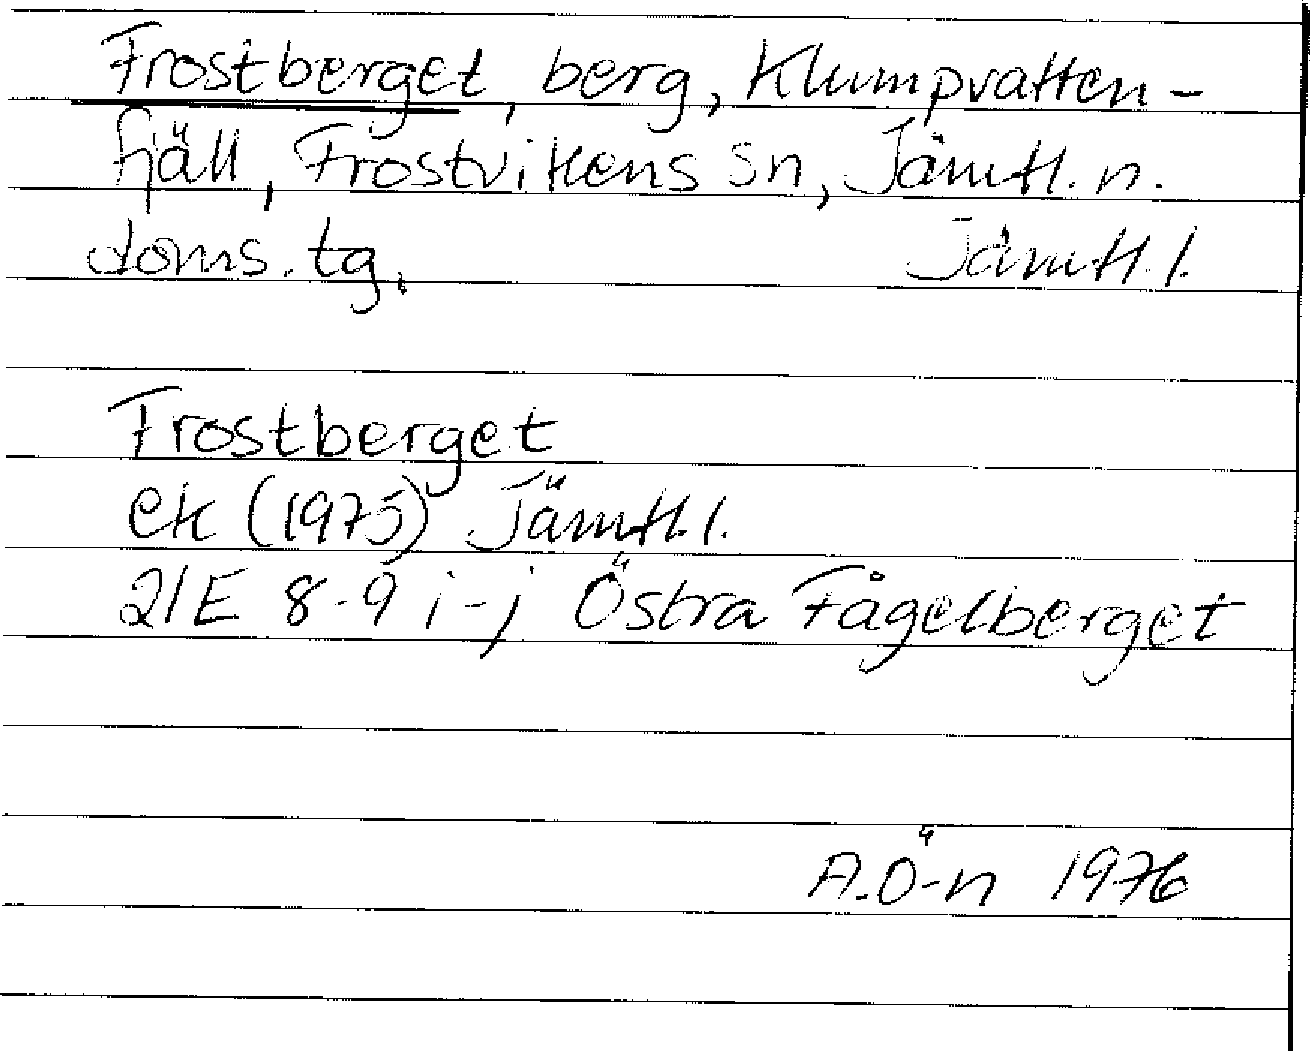 Frostberget, berg, Klumpvatten-
fjäll, Frostvikens sn, Jämtl. n.
doms. tg. Jämtl. l.
Frostberget
ek (1975) Jämtl. l.
21E 8-9 i-j Östra Fågelberget
A.Ö-n 1976